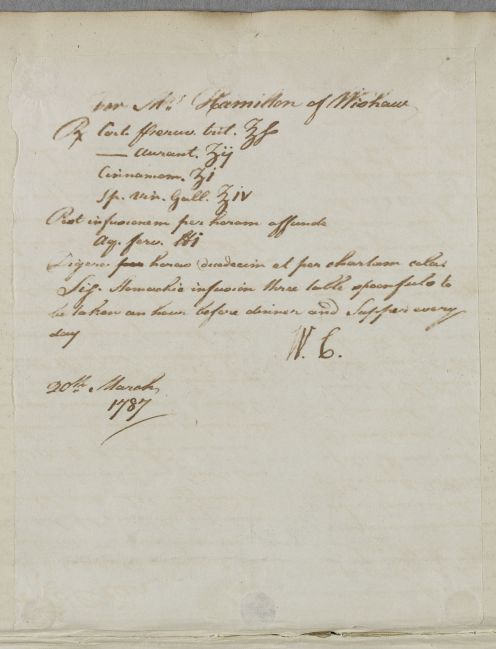 For Mrs Hamilton of Wishaw
℞ Cort. Peruv. trit. ℥ſs
— Aurant. ʒij
Cinnamom. ʒi
Sp. Vin. Gall. ℥iv
Post infusionem per horam affunde
Aq. ferv. ℔i
Digere horas duodecim et per chartam cola
Sig. Stomachic infusion three table spoonfuls to
be taken an hour before dinner and Supper every
day
W. C.
20th March
1787